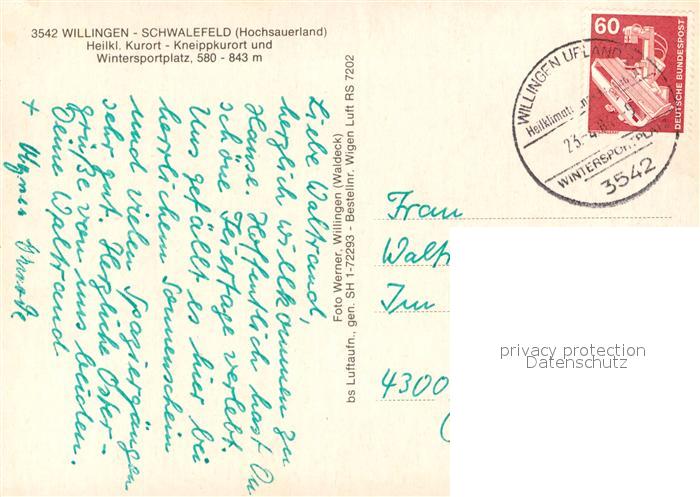 3542 WILLINGEN - SCHWALEFELD (Hochsauerland)
Heilkl. Kurort - Kneippkurort und
Wintersportplatz, 580 - 843 m
Liebe Waltraud,
herzlich willkommen zu
Hause. Hoffentlich hast Du
schöne Feiertage verlebt.
Uns gefällt es hier bei
herrlichem Sonnenschein
und vielen Spaziergängen
sehr gut. Herzliche Oster-
grüße von uns beiden.
Deine Waltraud
+
Foto Werner, Willingen (Waldeck)
bs Luftaufn., gen. SH 1-72293 - Bestellnr. Wigen Luft RS 7202
60
DEUTSCHE BUNDESPOST
WILLINGEN UPLAND
WINTERSPORTPLATZ
3542
Frau
Im
4300
privacy protection
Datenschutz